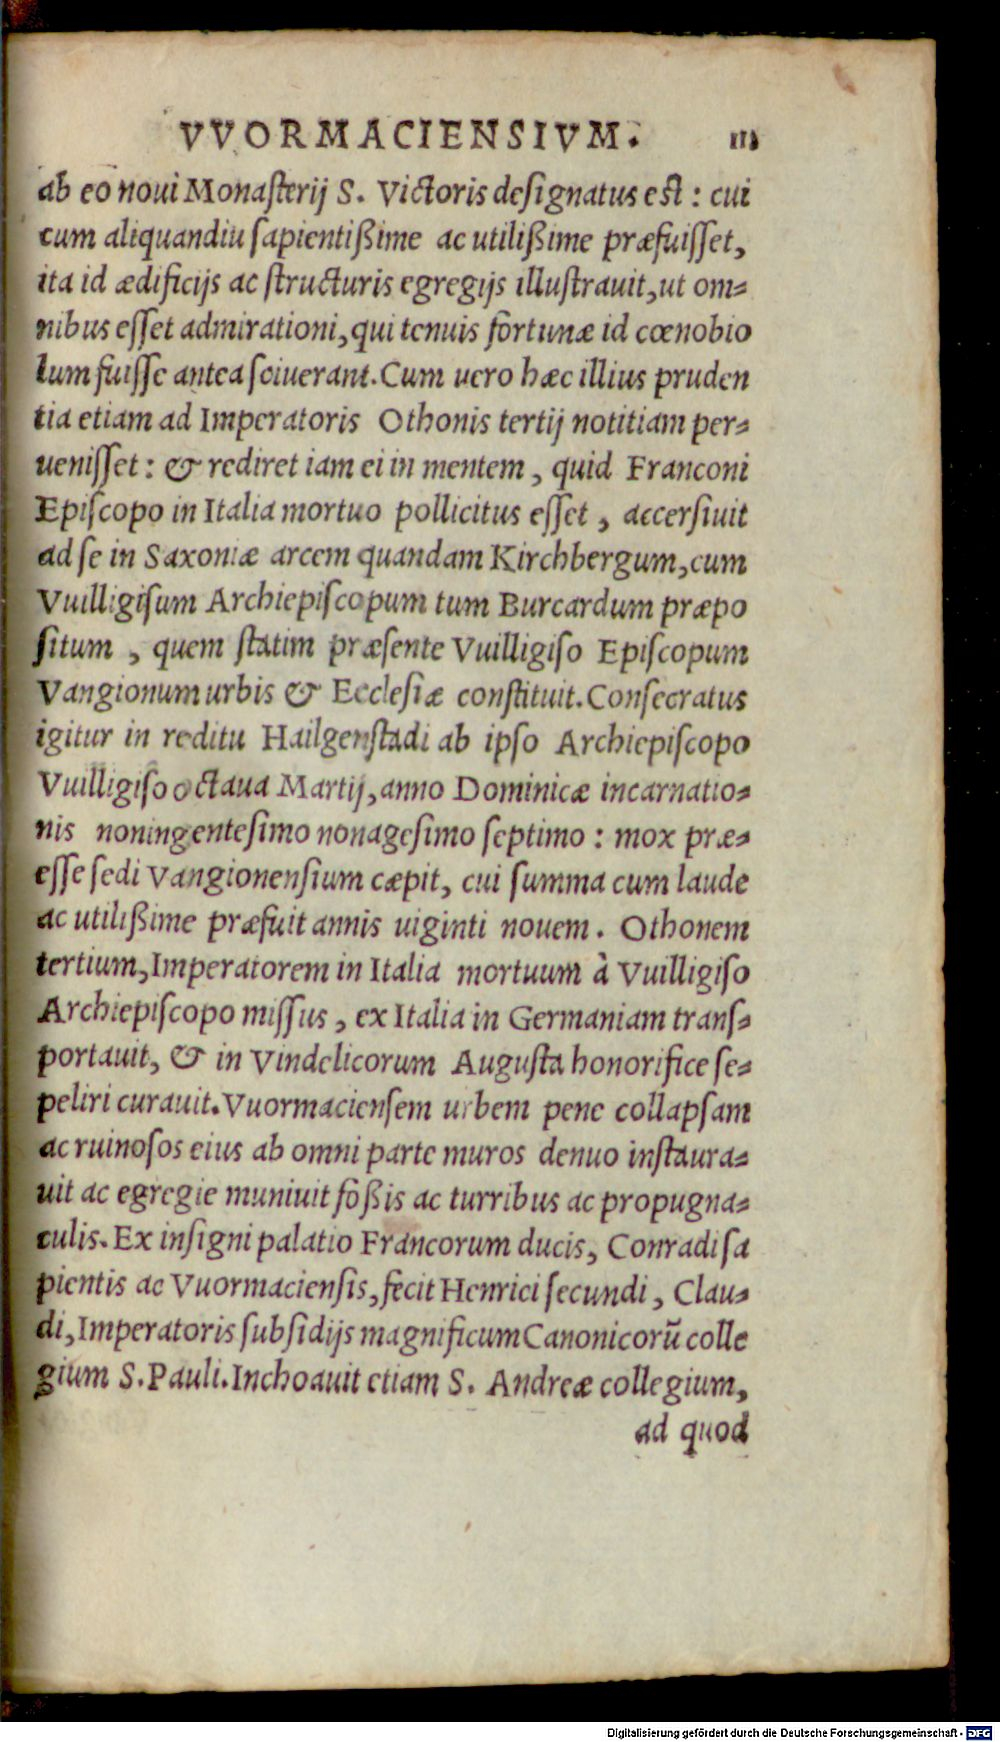 VVORMACIENSIVM. 111
ab eo noui Monasterij S. Victoris designatus est: cui
cum aliquandiu sapientißime ac utilißime præfuisset,
ita id ædificijs ac structuris egregijs illustrauit, ut om-
nibus esset admirationi, qui tenuis fortunæ id cœnobio
lum fuisse antea sciuerant. Cum uero hæc illius pruden
tia etiam ad Imperatoris Othonis tertij notitiam per-
uenisset: & rediret iam ei in mentem, quid Franconi
Episcopo in Italia mortuo pollicitus esset, accersiuit
ad se in Saxoniæ arcem quandam Kirchbergum, cum
Vuilligisum Archiepiscopum tum Burcardum præpo
situm, quem statim præsente Vuilligiso Episcopum
Vangionum urbis & Ecclesiæ constituit. Consecratus
igitur in reditu Hailgenstadi ab ipso Archiepiscopo
Vuilligiso octaua Martij, anno Dominicæ incarnatio-
nis noningentesimo nonagesimo septimo: mox præ-
esse sedi Vangionensium cæpit, cui summa cum laude
ac utilißime præfuit annis uiginti nouem. Othonem
tertium, Imperatorem in Italia mortuum à Vuilligiso
Archiepiscopo missus, ex Italia in Germaniam trans-
portauit, & in Vindelicorum Augusta honorifice se-
peliri curauit. Vuormaciensem urbem pene collapsam
ac ruinosos eius ab omni parte muros denuo instaura-
uit ac egregie muniuit foßis ac turribus ac propugna-
culis. Ex insigni palatio Francorum ducis, Conradi sa
pientis ac Vuormaciensis, fecit Henrici secundi, Clau-
di, Imperatoris subsidijs magnificum Canonicorū colle
gium S. Pauli. Inchoauit etiam S. Andreæ collegium,
ad quod
Digitalisierung gefördert durch die Deutsche Forschungsgemeinschaft - DFG